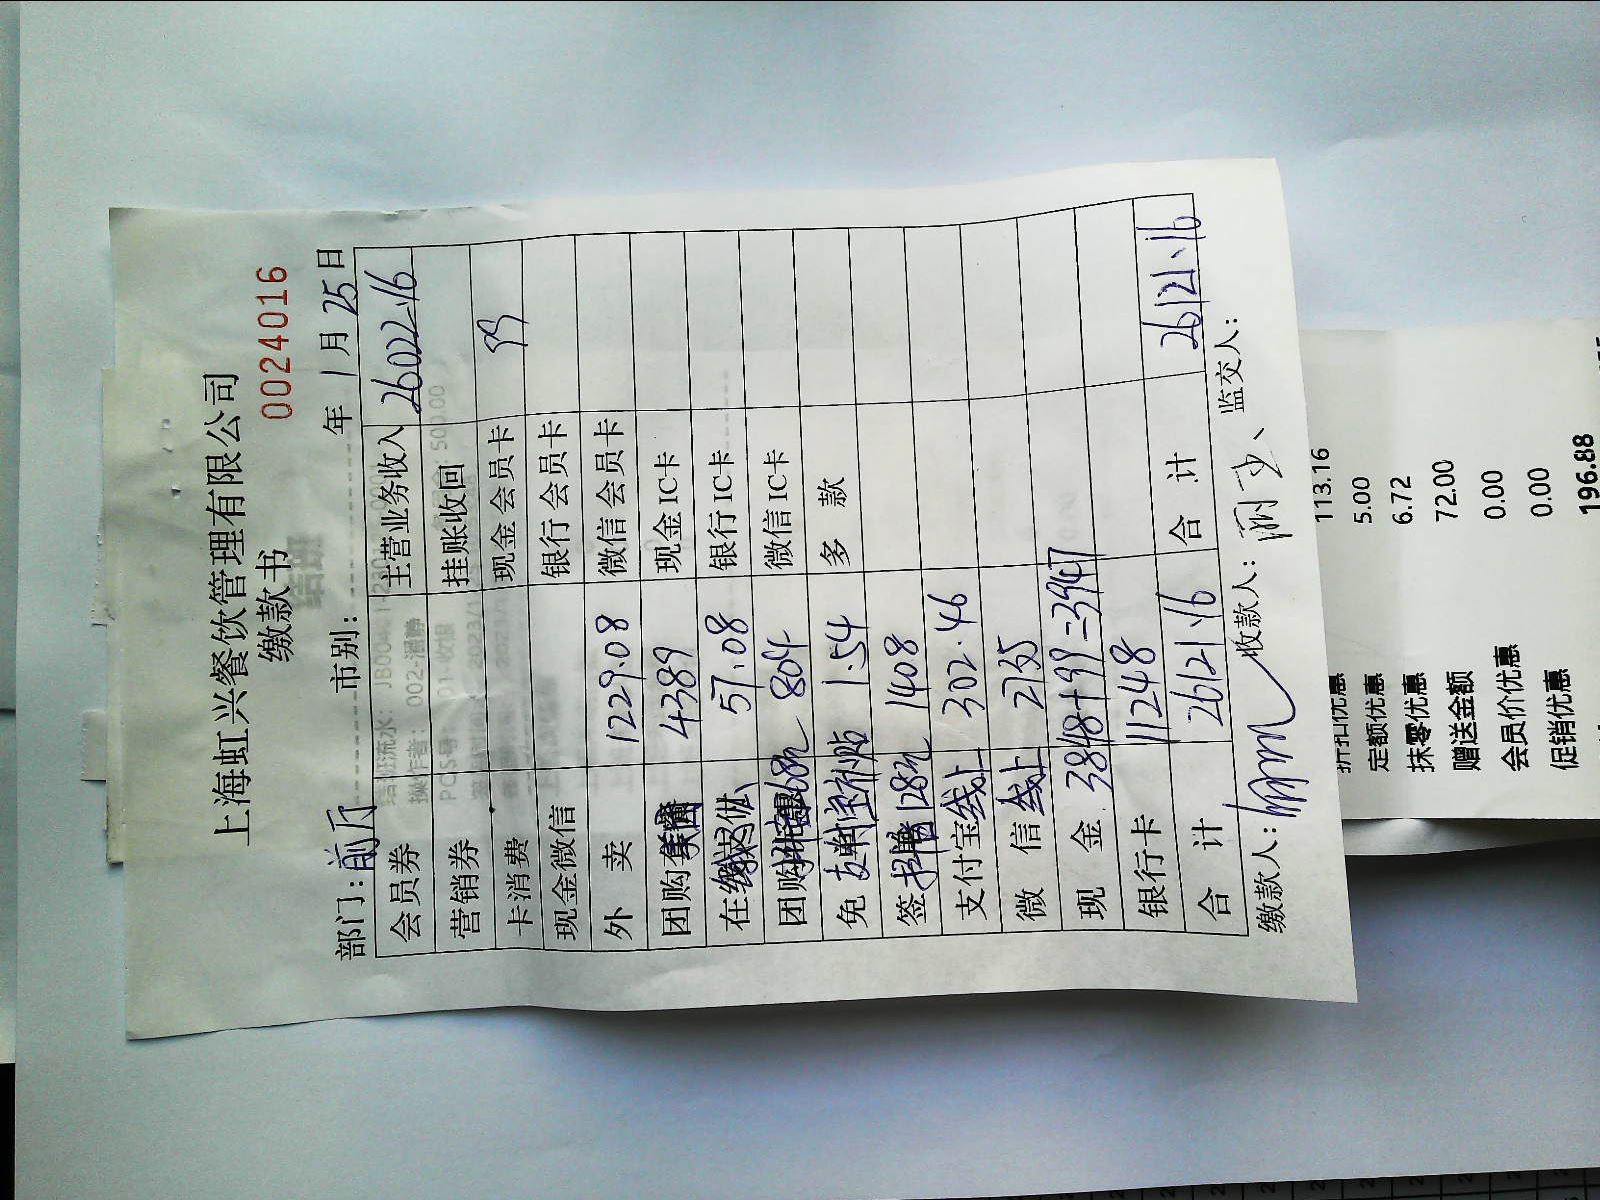 上海虹兴餐饮管理有限公司
缴款书
0024016
部门:前厅 市别: 年 1 月 25 日
会员券 主营业务收入 26022.16
营销券 挂账收回
卡消费 现金会员卡 99
现金微信 银行会员卡
外 卖 1229.08 微信会员卡
团购 4389 现金IC卡
在线 57.08 银行IC卡
团购 68元 804 微信IC卡
免 支付宝补贴 1.54 多 款
签 128元 1408
支付宝线上 302.46
微 信线上 2735
现 金 3848+99=3947
银行卡 11248
合 计 26121.16 合 计 26121.16
缴款人: 收款人: 监交人:
113.16
定额优惠 5.00
抹零优惠 6.72
赠送金额 72.00
会员价优惠 0.00
促销优惠 0.00
196.88